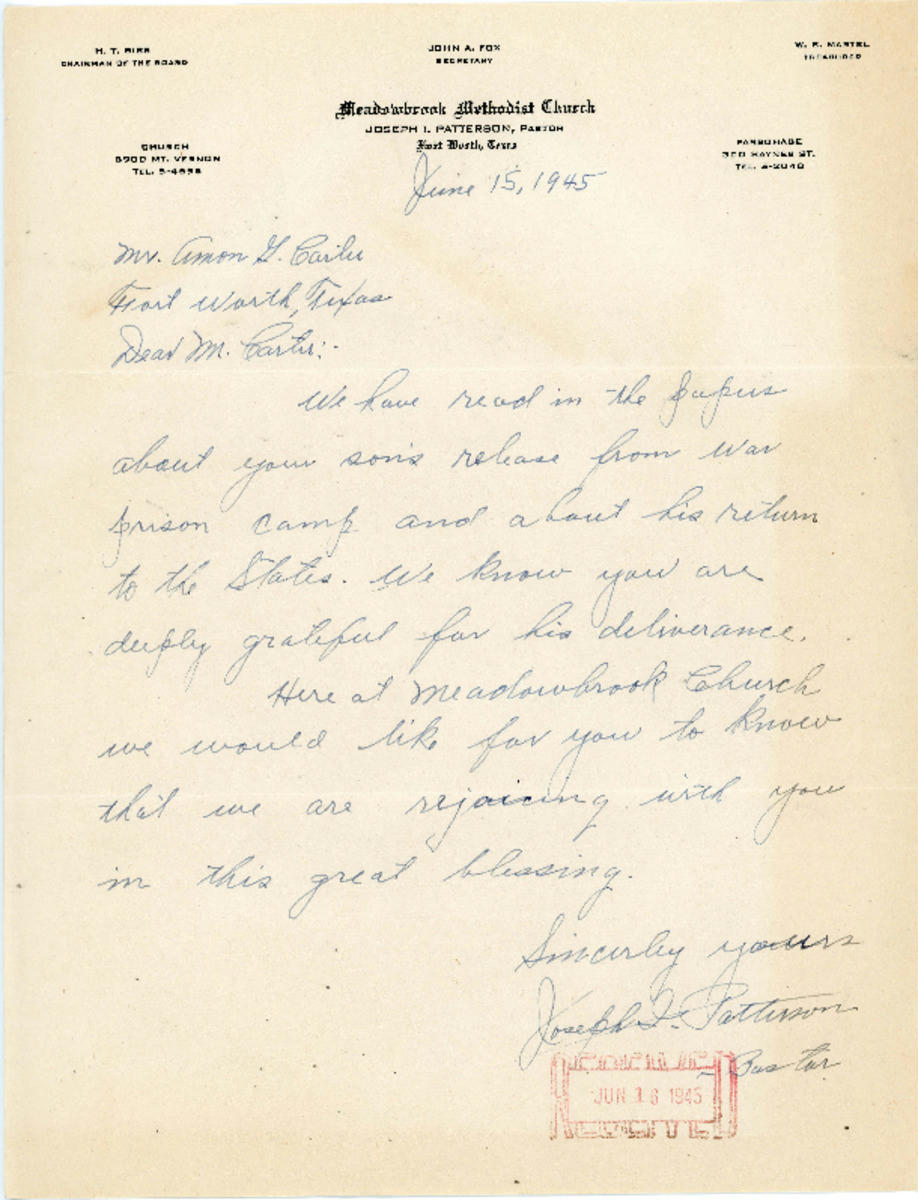 JOHN A. FOX
SECRETARY
H. T. BIBB
CHAIRMAN OF THE BOARD
W. R. MARTEL
TREASURER
Meadowbrook Methodist Church
JOSEPH I. PATTERSON, PASTOR
Fort Worth, Texas
CHURCH
5900 MT. VERNON
TEL.
PARSONAGE
HAYNES ST.
TEL.
June 15, 1945
Mr. Amon G. Carter
Fort Worth, Texas
Dear M. Carter:-
We have read in the papers
about your son's release from war
prison camp and about his return
to the States. We know you are
deeply grateful for his deliverance.
Here at Meadowbrook Church
we would like for you to know
that we are rejoicing with you
in this great blessing.
Sincerley yours
Joseph I. Patterson
- Pastor
JUN 16 1945